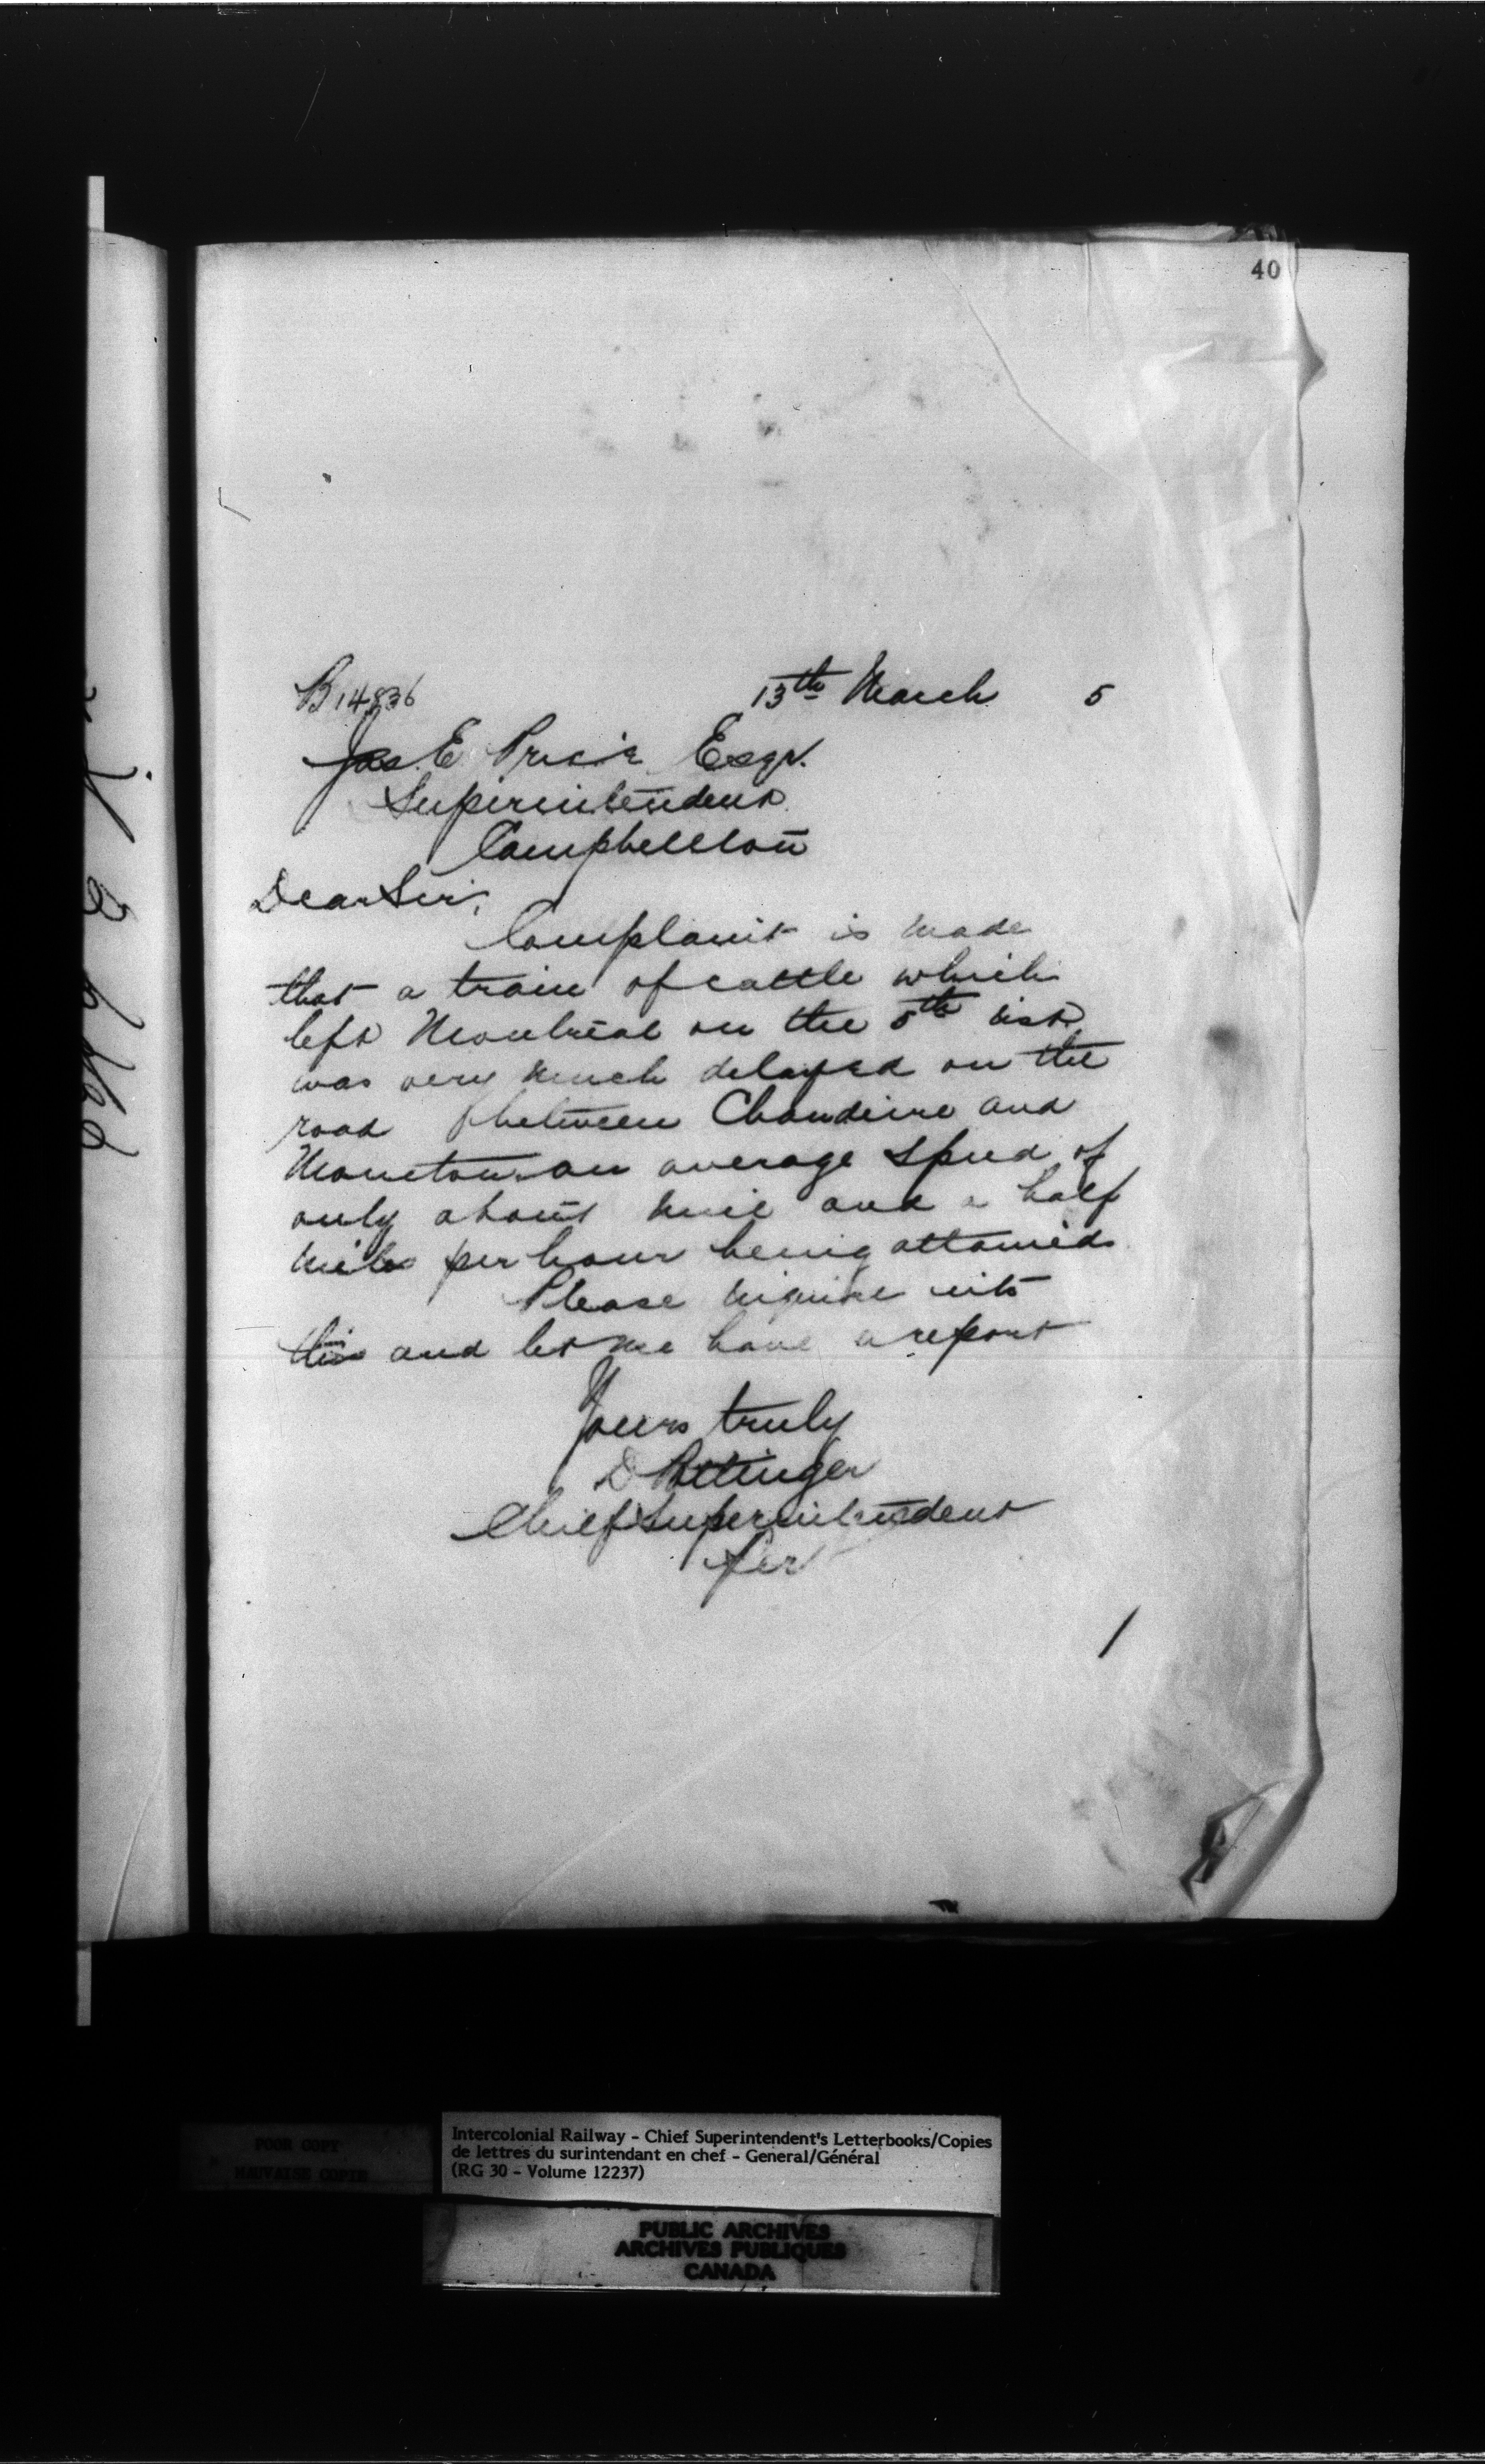 40
B 14836
13th March 5
Jas. E. Price Esqr.
Superintendent
Campbellton
Dear Sir,
Complaint is made
that a train of cattle which
left Montreal on the 5th inst
was very much delayed on the
road between Chaudiere and
Moncton an average speed of
only about nine and a half
miles per hour being attained
Please inquire into
this and let me have a report
Yours truly
D Pottinger
Chief Superintendent
Per
POOR COPY
MAUVAISE COPIE
Intercolonial Railway - Chief Superintendent's Letterbooks/Copies
de lettres du surintendant en chef - General/Général
(RG 30 - Volume 12237)
PUBLIC ARCHIVES
ARCHIVES PUBLIQUES
CANADA